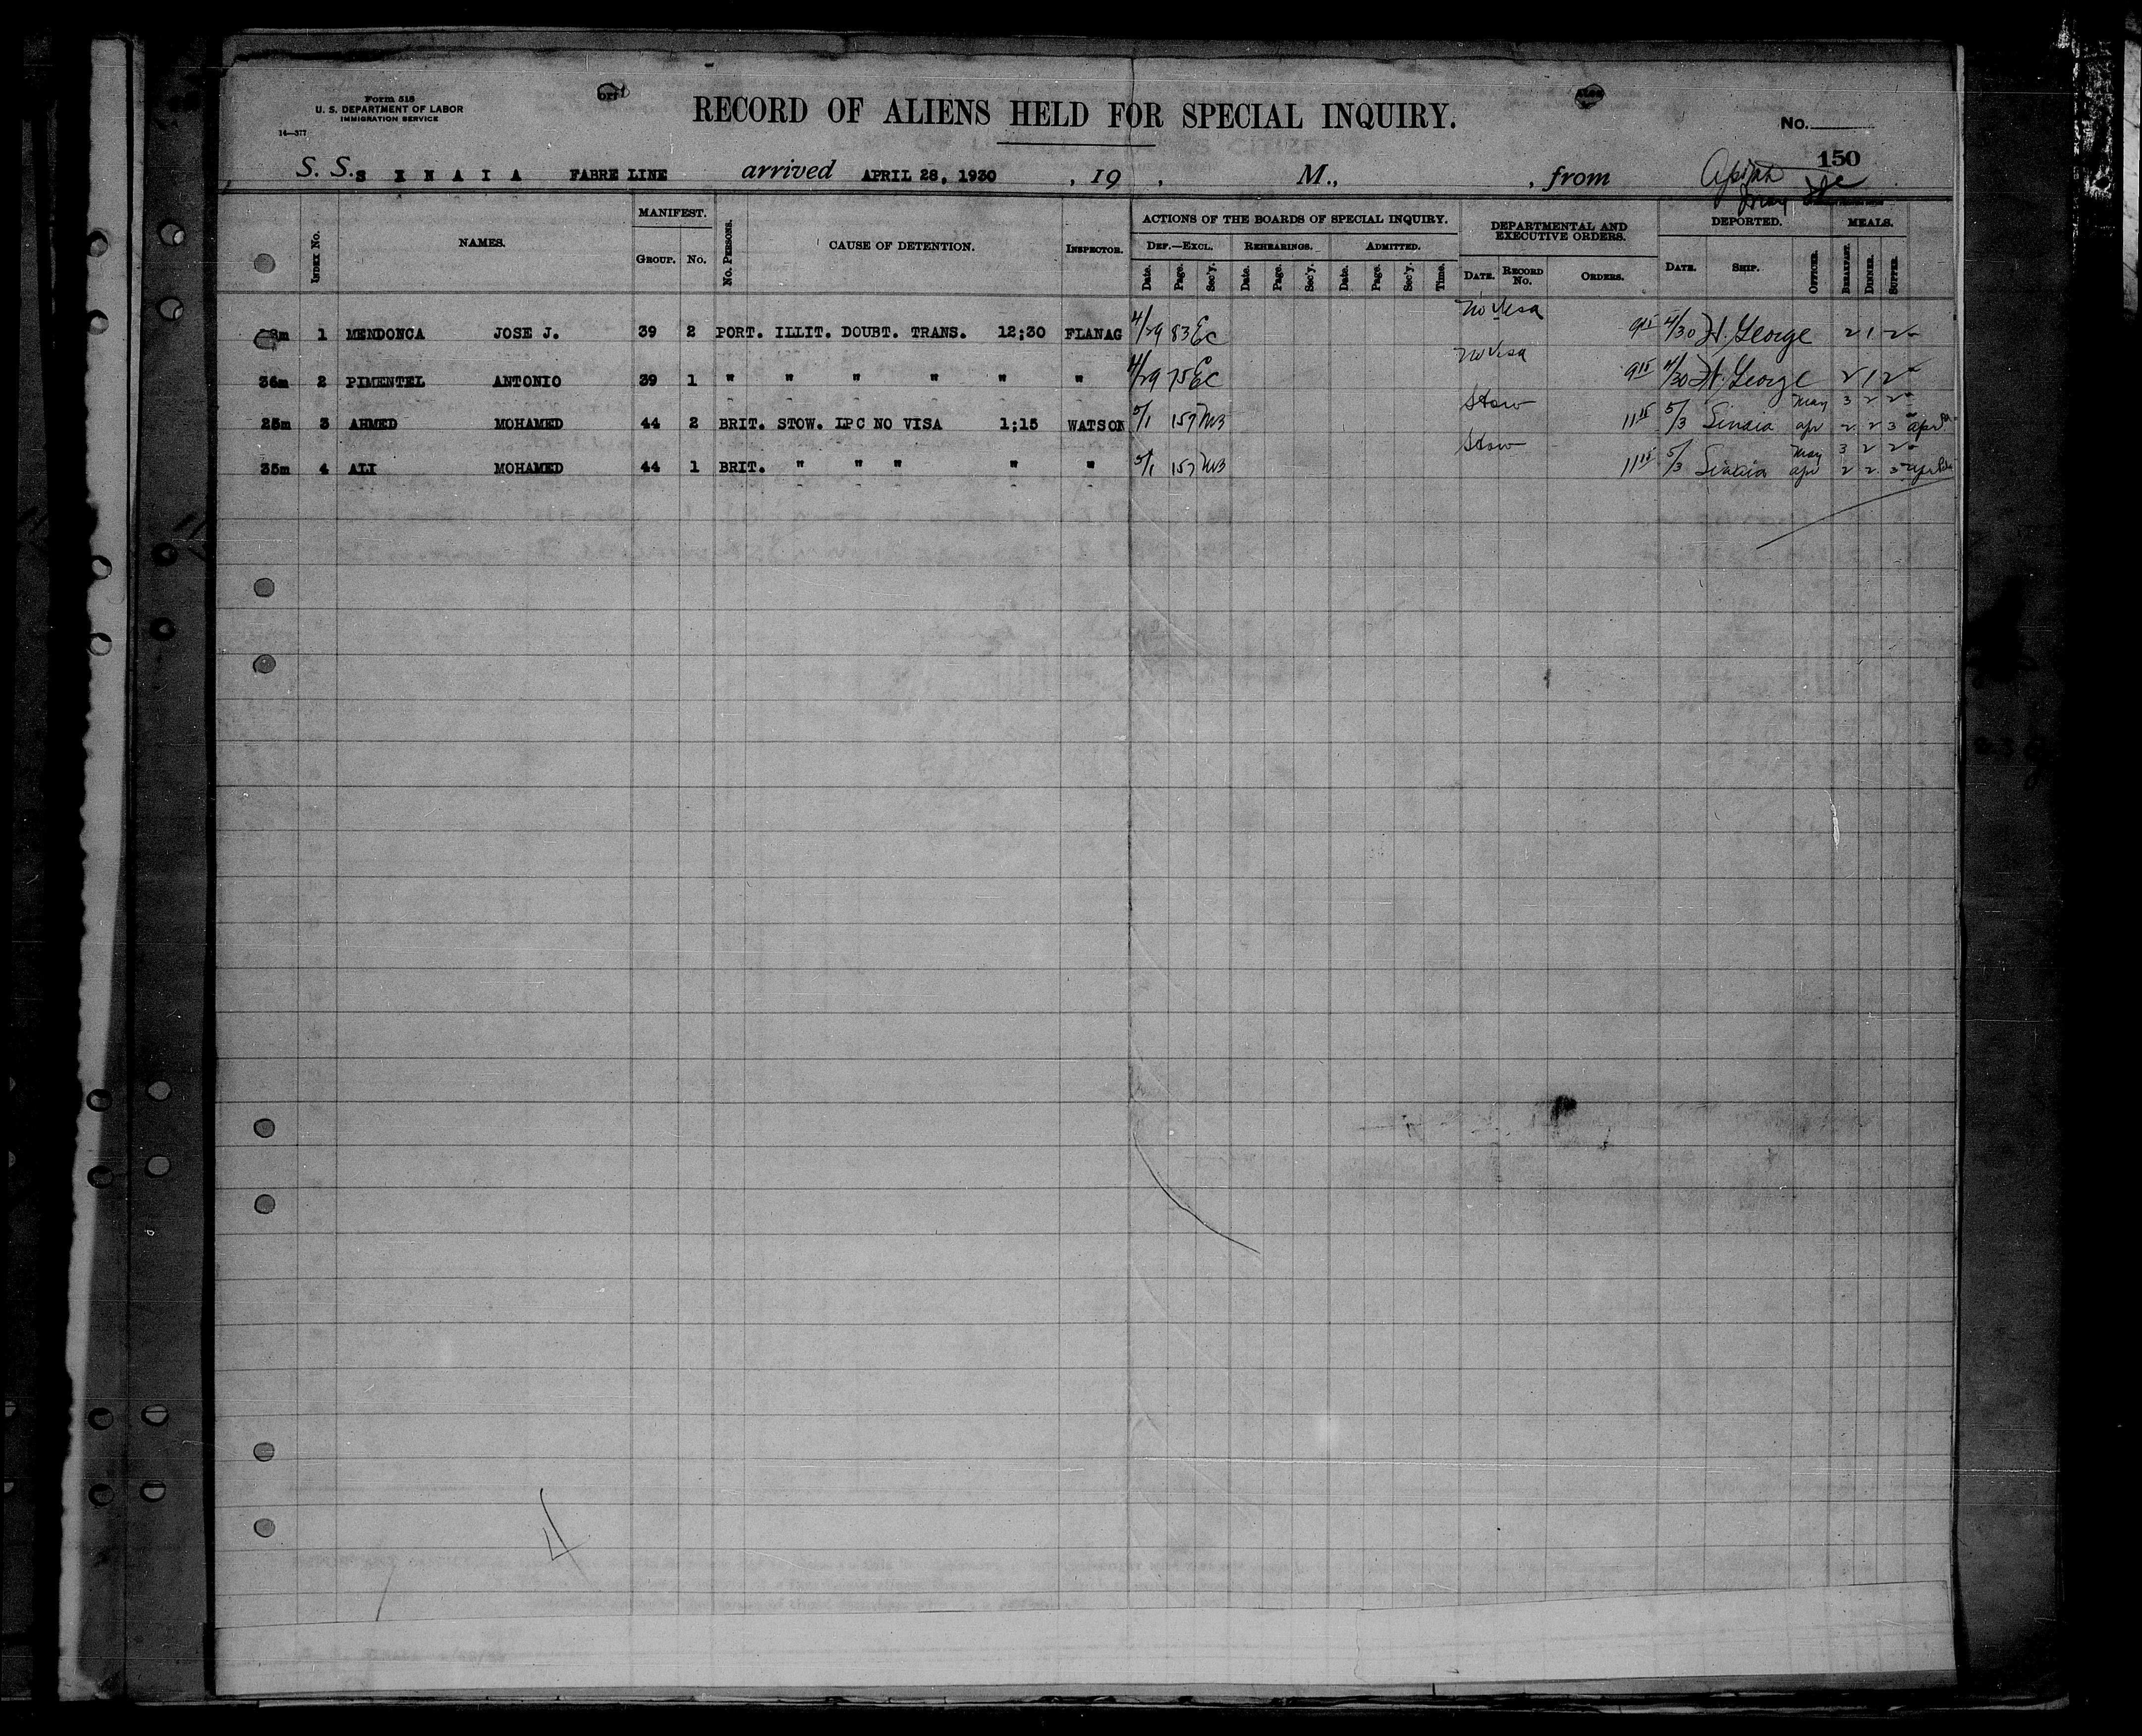 Form 518
U. S. DEPARTMENT OF LABOR
IMMIGRATION SERVICE
14—377
RECORD OF ALIENS HELD FOR SPECIAL INQUIRY.
No.
150
S. S. S I N A I A FABRE LINE arrived APRIL 28, 1930 , 19 , M., , from
INDEX No. NAMES. MANIFEST. GROUP. No. No. PERSONS. CAUSE OF DETENTION. INSPECTOR. ACTIONS OF THE BOARDS OF SPECIAL INQUIRY. DEF.—EXCL. Date. Page. Sec'y. REHEARINGS. Date. Page. Sec'y. ADMITTED. Date. Page. Sec'y. Time. DEPARTMENTAL AND EXECUTIVE ORDERS. DATE. RECORD No. ORDERS. DEPORTED. DATE. SHIP. OFFICER. MEALS. BREAKFAST. DINNER. SUPPER.
No Visa
1 MENDONCA JOSE J. 39 2 PORT. ILLIT. DOUBT. TRANS. 12;30 FLANAG 4/29 83 EC 9 15 4/30 Ft. George 2 1 2
No Visa
36m 2 PIMENTEL ANTONIO 39 1 " " " " " " 4/29 75 EC 9 15 4/30 Ft. George 2 1 2
Stow May 3 2 2
25m 3 AHMED MOHAMED 44 2 BRIT. STOW. LPC NO VISA 1;15 WATSON 5/1 157 MB 11 15 5/3 Sinaia apr 2 2 3
Stow May 3 2 2
35m 4 ALI MOHAMED 44 1 BRIT. " " " " " 5/1 157 MB 11 15 5/3 Sinaia apr 2 2 3
4